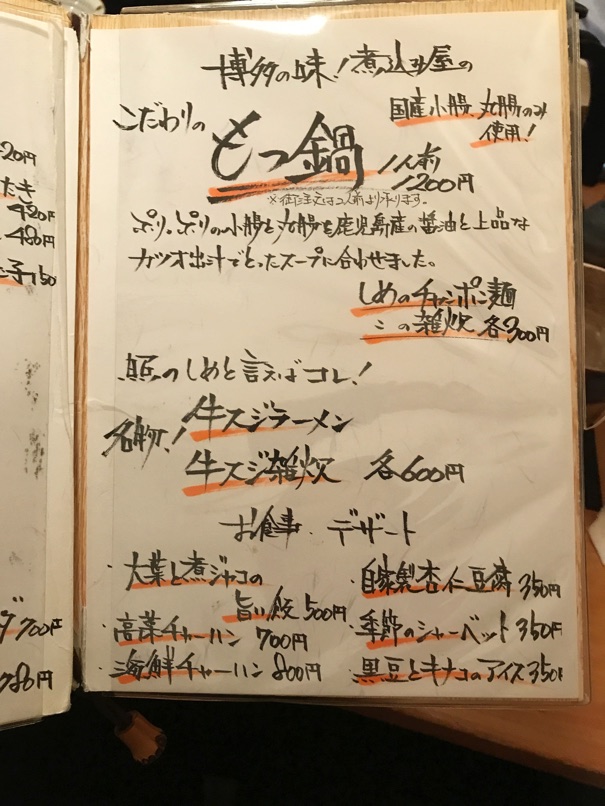 博多の味!煮込み屋の
こだわりの
国産小腸、丸腸のみ
使用!
もつ鍋
1人前
1200円
※御注文は2人前より承ります。
ぷりっぷりの小腸と丸腸を鹿児島産の醤油と上品な
カツオ出汁でとったスープに合わせました。
しめのチャンポン麺
〃の雑炊 各300円
のしめと言えばコレ!
名物!
牛スジラーメン
牛スジ雑炊 各600円
お食事・デザート
・大葉と煮ジャコの
旨い飯 500円
・高菜チャーハン 700円
・海鮮チャーハン 800円
・自家製杏仁豆腐 350円
・季節のシャーベット 350円
・黒豆とキナコのアイス 350
20円
たき
420円
480円
子 150
700円
780円